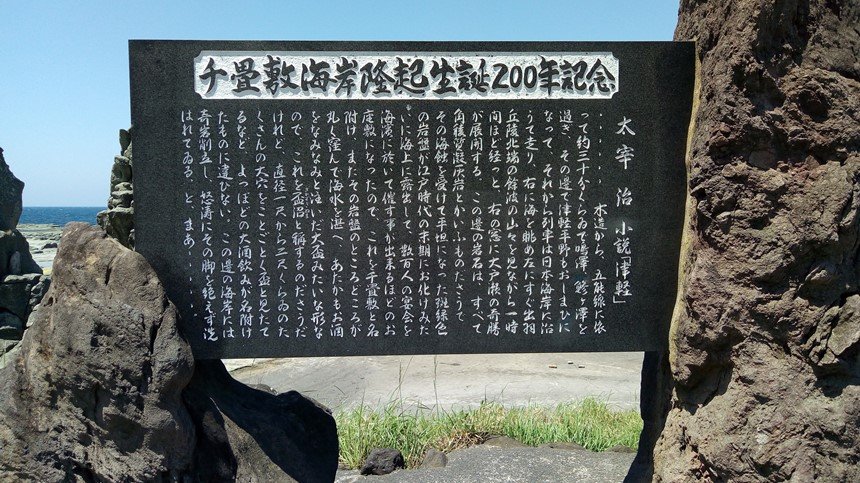 千畳敷海岸隆起生誕200年記念
太宰 治 小説「津軽」
・・・・・・、木造から、五能線に依
つて約三十分くらゐで鳴澤、鰺ヶ澤を
過ぎ、その邊で津軽平野もおしまひに
なつて、それから列車は日本海岸に沿
うて走り、右に海を眺め左にすぐ出羽
丘陵北端の餘波の山々を見ながら一時
間ほど経つと、右の窓に大戸瀬の奇勝
が展開する。この邊の岩石は、すべて
角稜質凝灰岩とかいふものださうで、
その海蝕を受けて平坦になつた斑緑色
の岩盤が江戸時代の末期にお化けみた
いに海上に露出して、数百人の宴会を
海濱に於いて催す事が出来るほどのお
座敷になつたので、これを千畳敷と名
附け、またその岩盤のところどころが
丸く窪んで海水を湛へ、あたかもお酒
をなみなみと注いだ大盃みたいな形な
ので、これを盃沼と稱するのださうだ
けれど、直径一尺から二尺くらゐのた
くさんの大穴をことごとく盃と見たて
るなど、よつぽどの大酒飲みが名附け
たものに違ひない。この邊の海岸には
奇岩削立し、怒濤にその脚を絶えず洗
はれてゐる。と、まあ、・・・・・